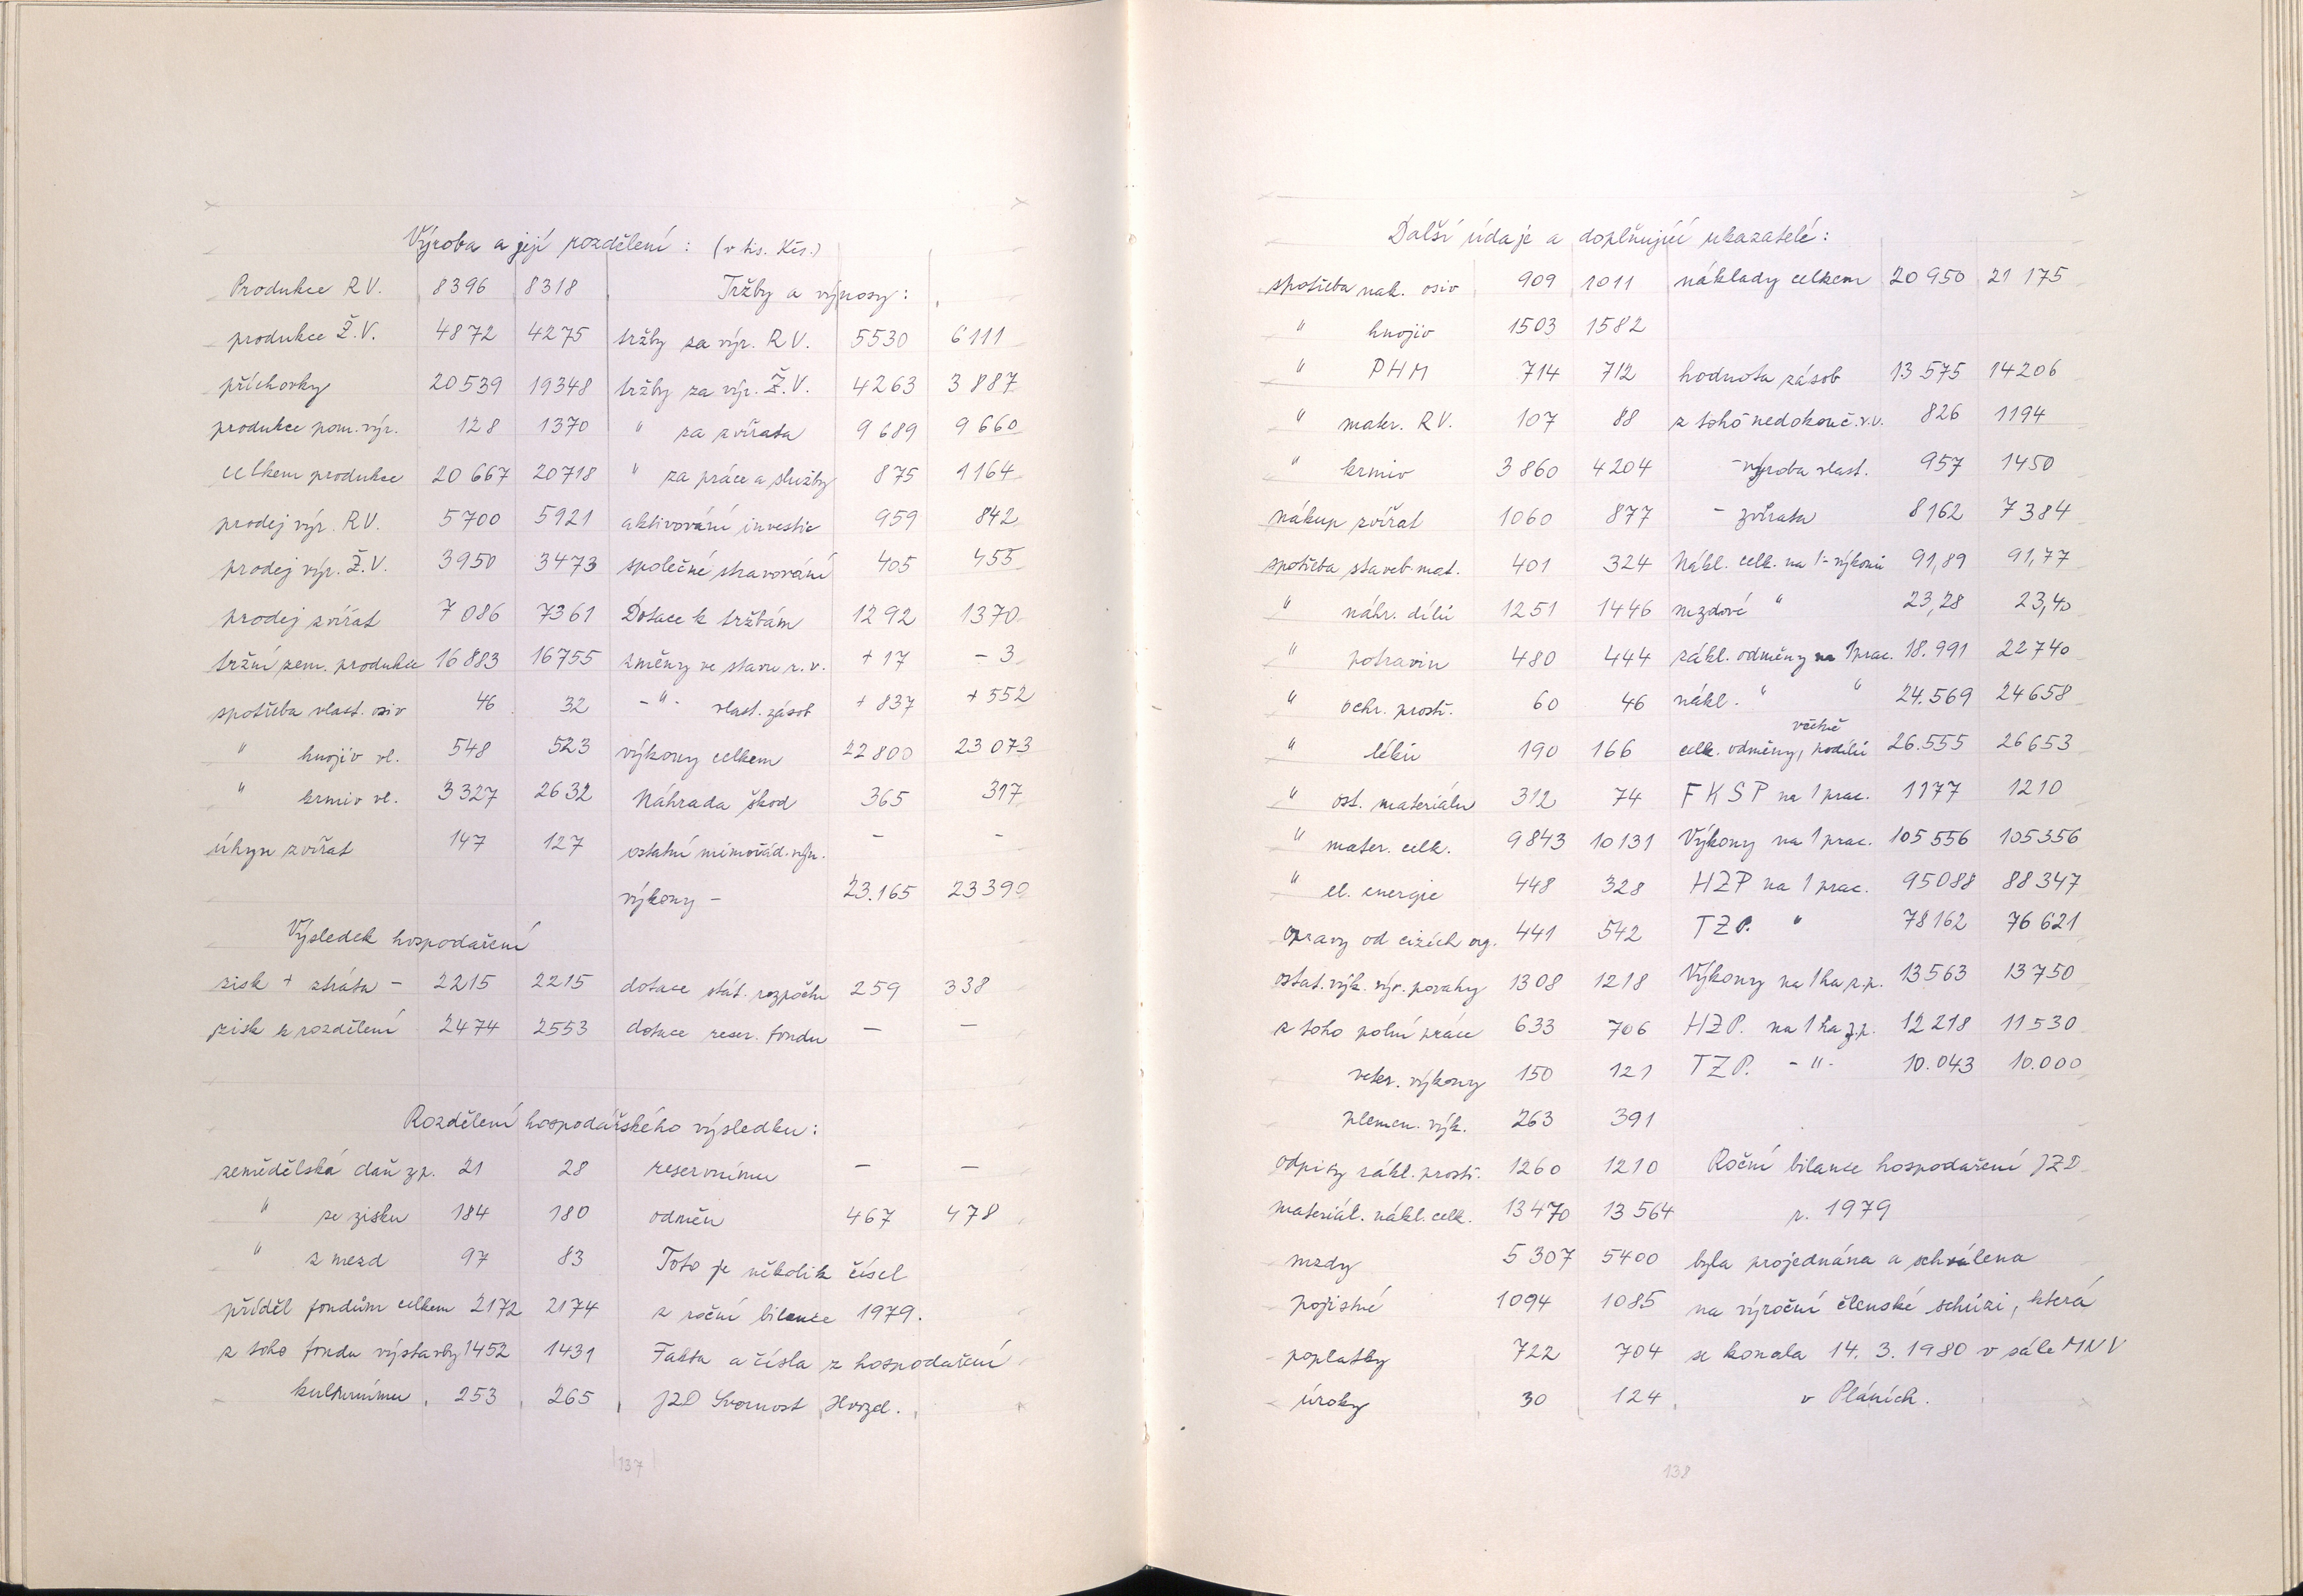 Výroba a její rozdělení : (v tis. Kčs.)
Produkce R V. 8396 8318 Tržby a výnosy :
produkce Ž.V. 4872 4275 tržby za výr. R V. 5530 6111
příchovky 20539 19348 tržby za výr. Ž.V. 4263 3887
produkce pom. výr. 128 1370 " za zvířata 9689 9660
celkem produkce 20667 20718 " za práce a služby 875 1164
prodej výr. R V. 5700 5921 aktivování investic 959 842
prodej výr. Ž.V. 3950 3473 společné stravování 405 455
prodej zvířat 7086 7361 Dotace k tržbám 1292 1370
tržní zem. produkce 16883 16755 změny ve stavu r. v. + 17 - 3
spotřeba vlast. osiv 46 32 - " - vlast. zásob + 837 + 552
" hnojiv vl. 548 523 výkony celkem 22800 23073
" krmiv vl. 3327 2632 Náhrada škod 365 317
úhyn zvířat 147 127 ostatní mimořád. výn. - -
výkony - 23.165 23390
Výsledek hospodaření
zisk + ztráta - 2215 2215 dotace stát. rozpočtu 259 338
zisk k rozdělení 2474 2553 dotace reser. fondu - -
Rozdělení hospodářského výsledku :
zemědělská daň z p. 21 28 reservnímu - -
" ze zisku 184 180 odměn 467 478
" z mezd 97 83 Toto je několik čísel
příděl fondům celkem 2172 2174 z roční bilance 1979.
z toho fondu výstavby 1452 1431 Fakta a čísla z hospodaření
kulturnímu 253 265 JZD Svornost Hvozd.
137
Další údaje a doplňující ukazatelé :
spotřeba nak. osiv 909 1011 náklady celkem 20950 21175
" hnojiv 1503 1582
" PHM 714 712 hodnota zásob 13575 14206
" mater. R V. 107 88 z toho nedokonč. r.v. 826 1194
" krmiv 3860 4204 - výroba vlast. 957 1450
nákup zvířat 1060 877 - zvířata 8162 7384
spotřeba staveb. mat. 401 324 Nákl. celk. na 1.- výkonů 91,89 91,77
" náhr. dílů 1251 1446 mzdové " 23,28 23,40
" potravin 480 444 zákl. odměny na 1 prac. 18.991 22740
" ochr. prostř. 60 46 nákl. " " 24.569 24658
" léků 190 166 celk. odměny, včetně podílů 26.555 26653
" ost. materiálu 312 74 F K S P na 1 prac. 1177 1210
" mater. celk. 9843 10131 Výkony na 1 prac. 105556 105356
" el. energie 448 328 HZP na 1 prac. 95088 88347
opravy od cizích org. 441 542 TZP. " 78162 76621
ostat. výk. výr. povahy 1308 1218 Výkony na 1 ha z.p. 13563 13750
z toho polní práce 633 706 HZP. na 1 ha z.p. 12218 11530
veter. výkony 150 121 TZP. - " - 10.043 10.000
plemen. výk. 263 391
odpisy zákl. prostř. 1260 1210 Roční bilance hospodaření JZD
materiál. nákl. celk. 13470 13564 r. 1979
mzdy 5307 5400 byla projednána a schválena
pojistné 1094 1085 na výroční členské schůzi, která
poplatky 722 704 se konala 14. 3. 1980 v sále MNV
úroky 30 124 v Pláních.
138